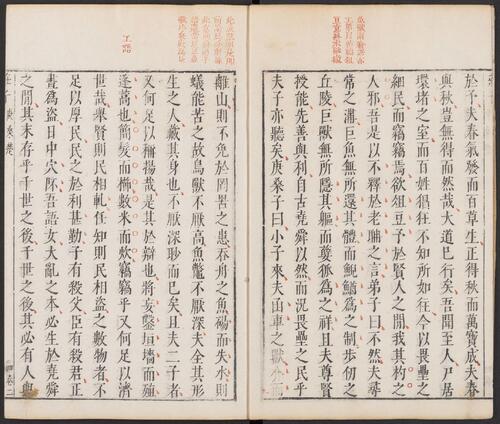 於予夫春氣發而百草生正得秋而萬寶成夫春
與秋豈無得而然哉大道已行矣吾聞至人尸居
環堵之室而百姓猖狂不知所如往今以畏壘之
細民而竊竊焉欲俎豆予於賢人之閒我其杓之
人邪吾是以不釋於老聃之言弟子曰不然夫尋
常之溝巨魚無所還其體而鯢鰌爲之制步仞之
丘陵巨獸無所隱其軀而㜸狐爲之祥且夫尊賢
授能先善與利自古堯舜以然而況畏壘之民乎
夫子亦聽矣庚桑子曰小子來夫函車之獸介而
離山則不免於罔罟之患吞舟之魚碭而失水則
蟻能苦之故鳥獸不厭高魚鱉不厭深夫全其形
生之人藏其身也不厭深眇而已矣且夫二子者
又何足以稱揚哉是其於辯也將妄鑿垣墻而殖
蓬蒿也簡髮而櫛數米而炊竊竊乎又何足以濟
世哉舉賢則民相軋任知則民相盜之數物者不
足以厚民民之於利甚勤子有殺父臣有殺君正
晝爲盜日中穴阫吾語女大亂之本必生於堯舜
之閒其末存乎千世之後千世之後其必有人與
庚桑楚